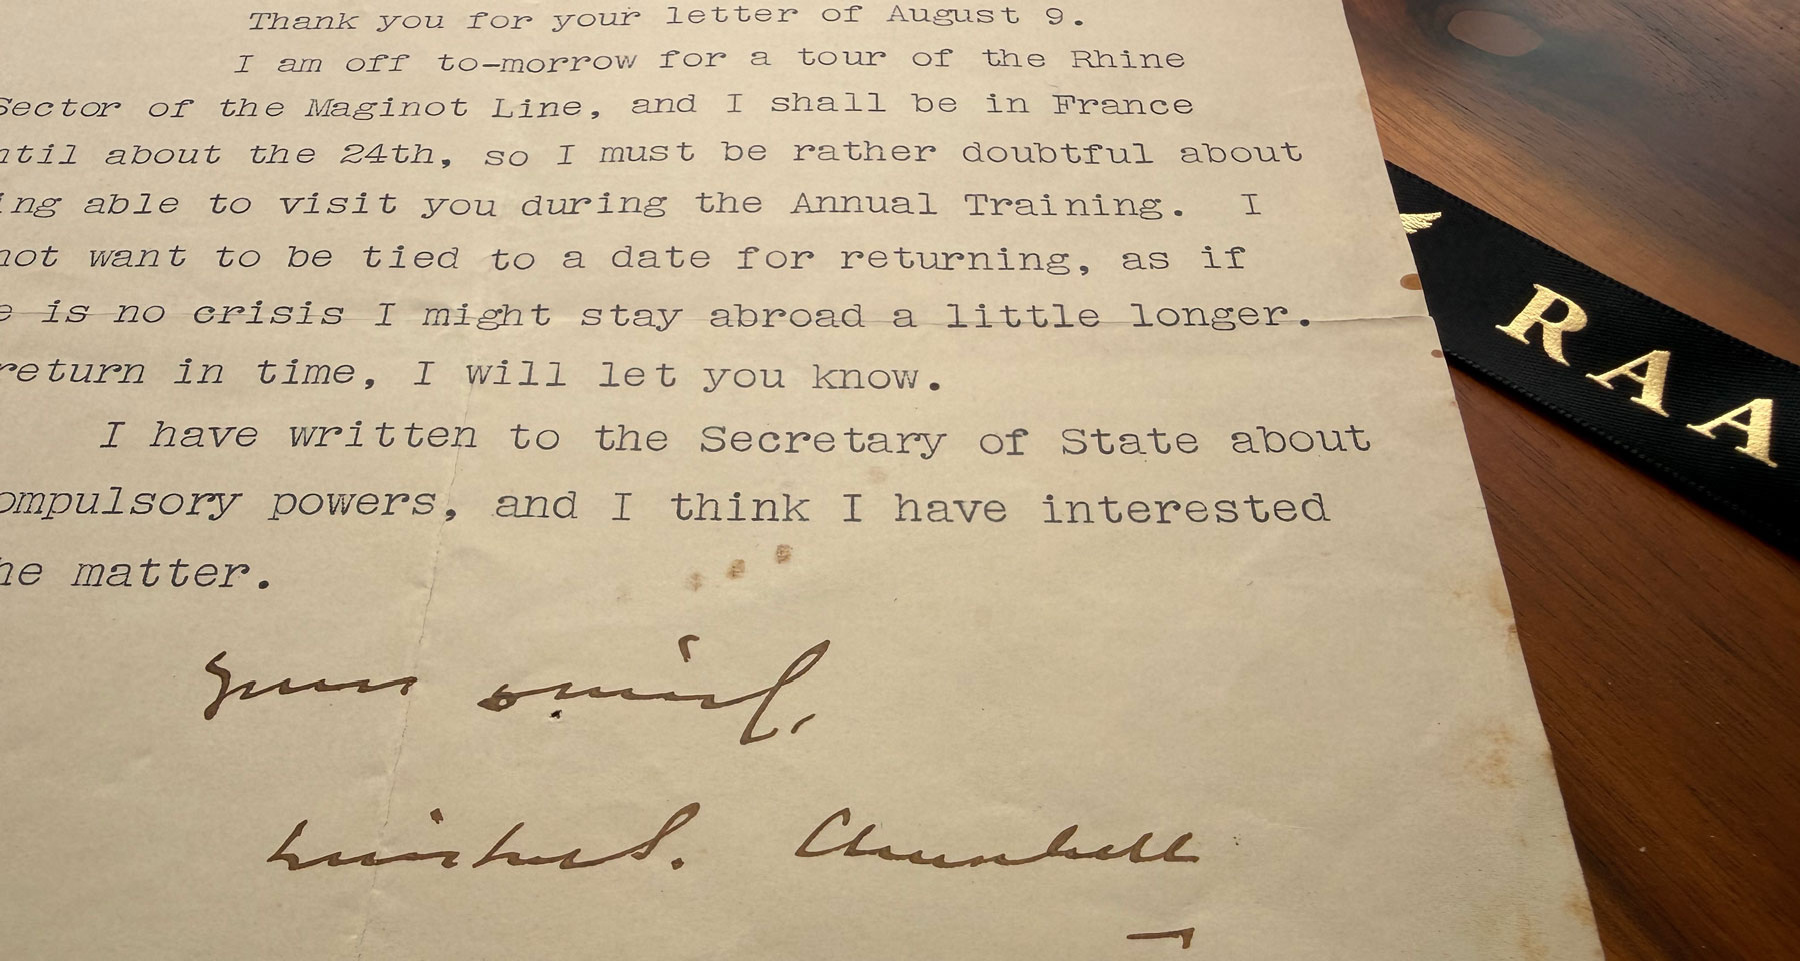 Thank you for your letter of August 9.
I am off to-morrow for a tour of the Rhine
Sector of the Maginot Line, and I shall be in France
ntil about the 24th, so I must be rather doubtful about
ing able to visit you during the Annual Training. I
not want to be tied to a date for returning, as if
e is no crisis I might stay abroad a little longer.
return in time, I will let you know.
I have written to the Secretary of State about
ompulsory powers, and I think I have interested
he matter.
Yours sincerely,
Winston S. Churchill
RAA